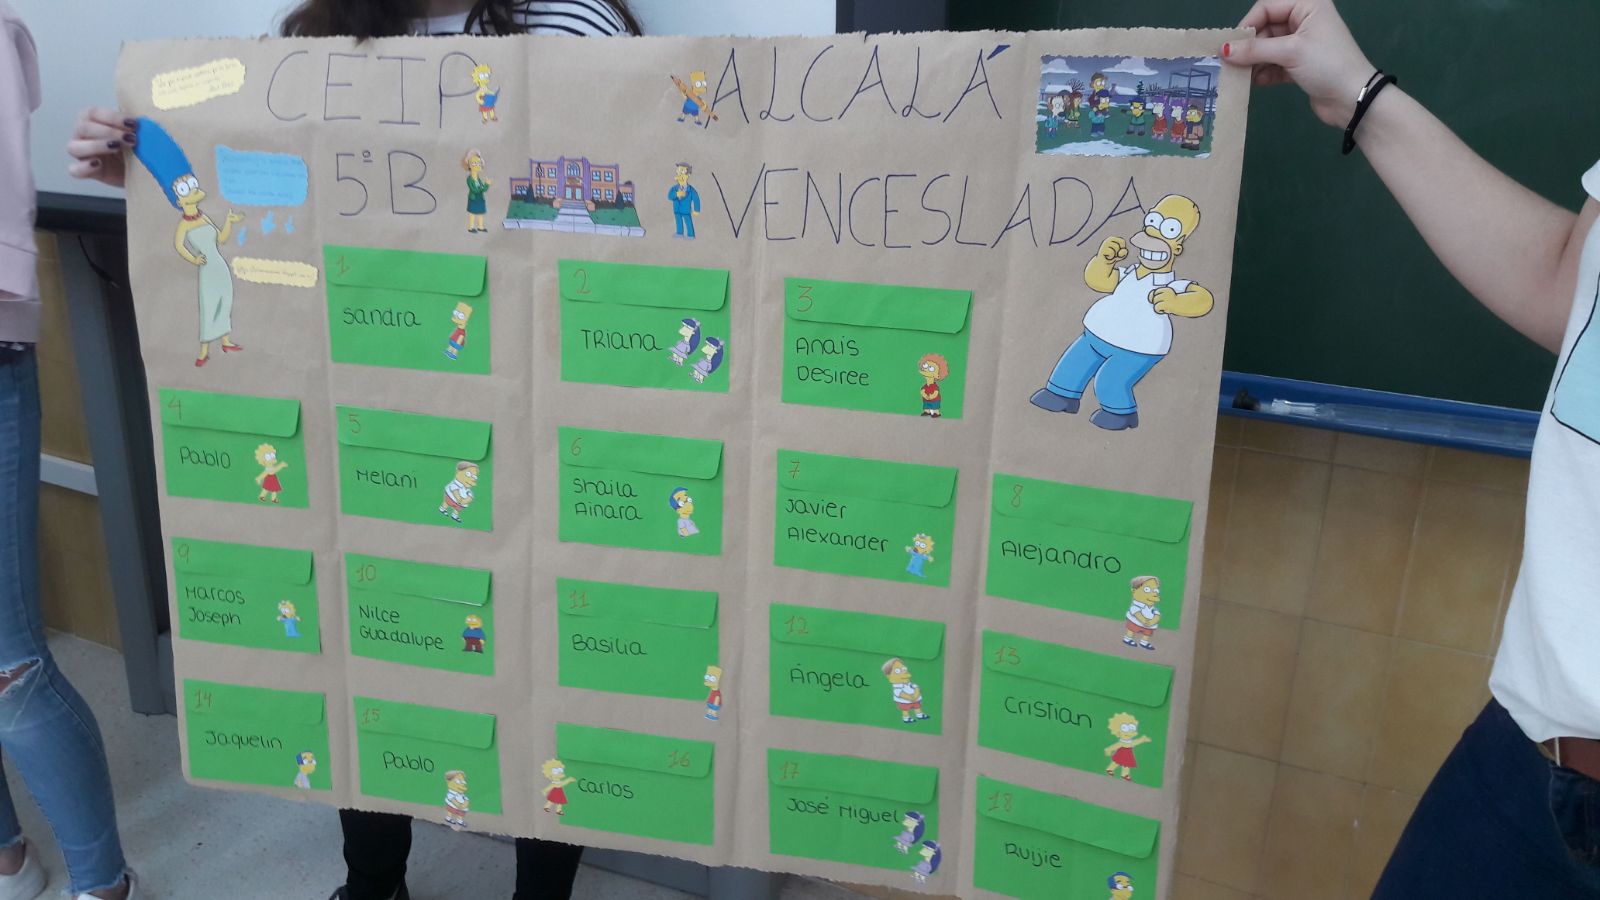 CEIP ALCALÁ
5ºB VENCESLADA
1
Sandra
2
Triana
3
Anais
Desiree
4
Pablo
5
Melani
6
Shaila
Ainara
7
Javier
Alexander
8
Alejandro
9
Marcos
Joseph
10
Nilce
Guadalupe
11
Basilia
12
Ángela
13
Cristian
14
Jaquelin
15
Pablo
16
Carlos
17
José Miguel
18
Ruijie